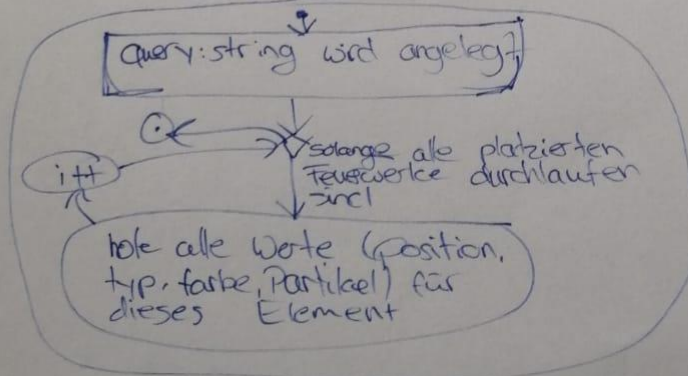 query:string wird angelegt
solange alle platzierten
Feuerwerke durchlaufen
sind
i++
hole alle Werte (position,
typ, farbe, Partikel) für
dieses Element